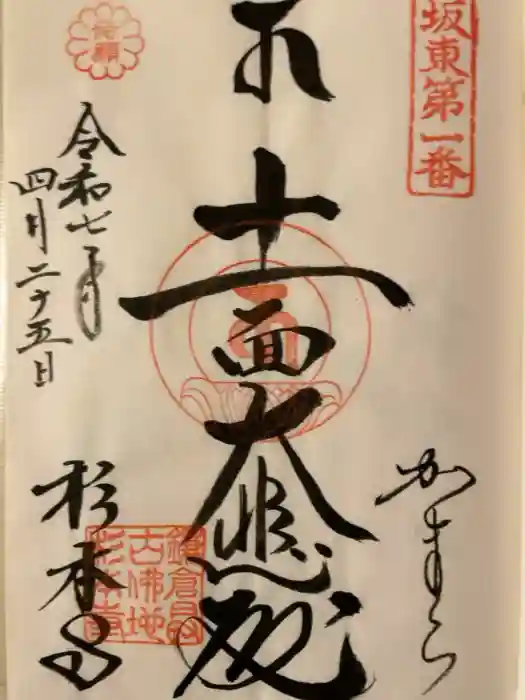 坂東第一番
かまくら
十一面大悲殿
令和七年
四月二十五日
杉本寺
鎌倉最
古佛地
杉本寺